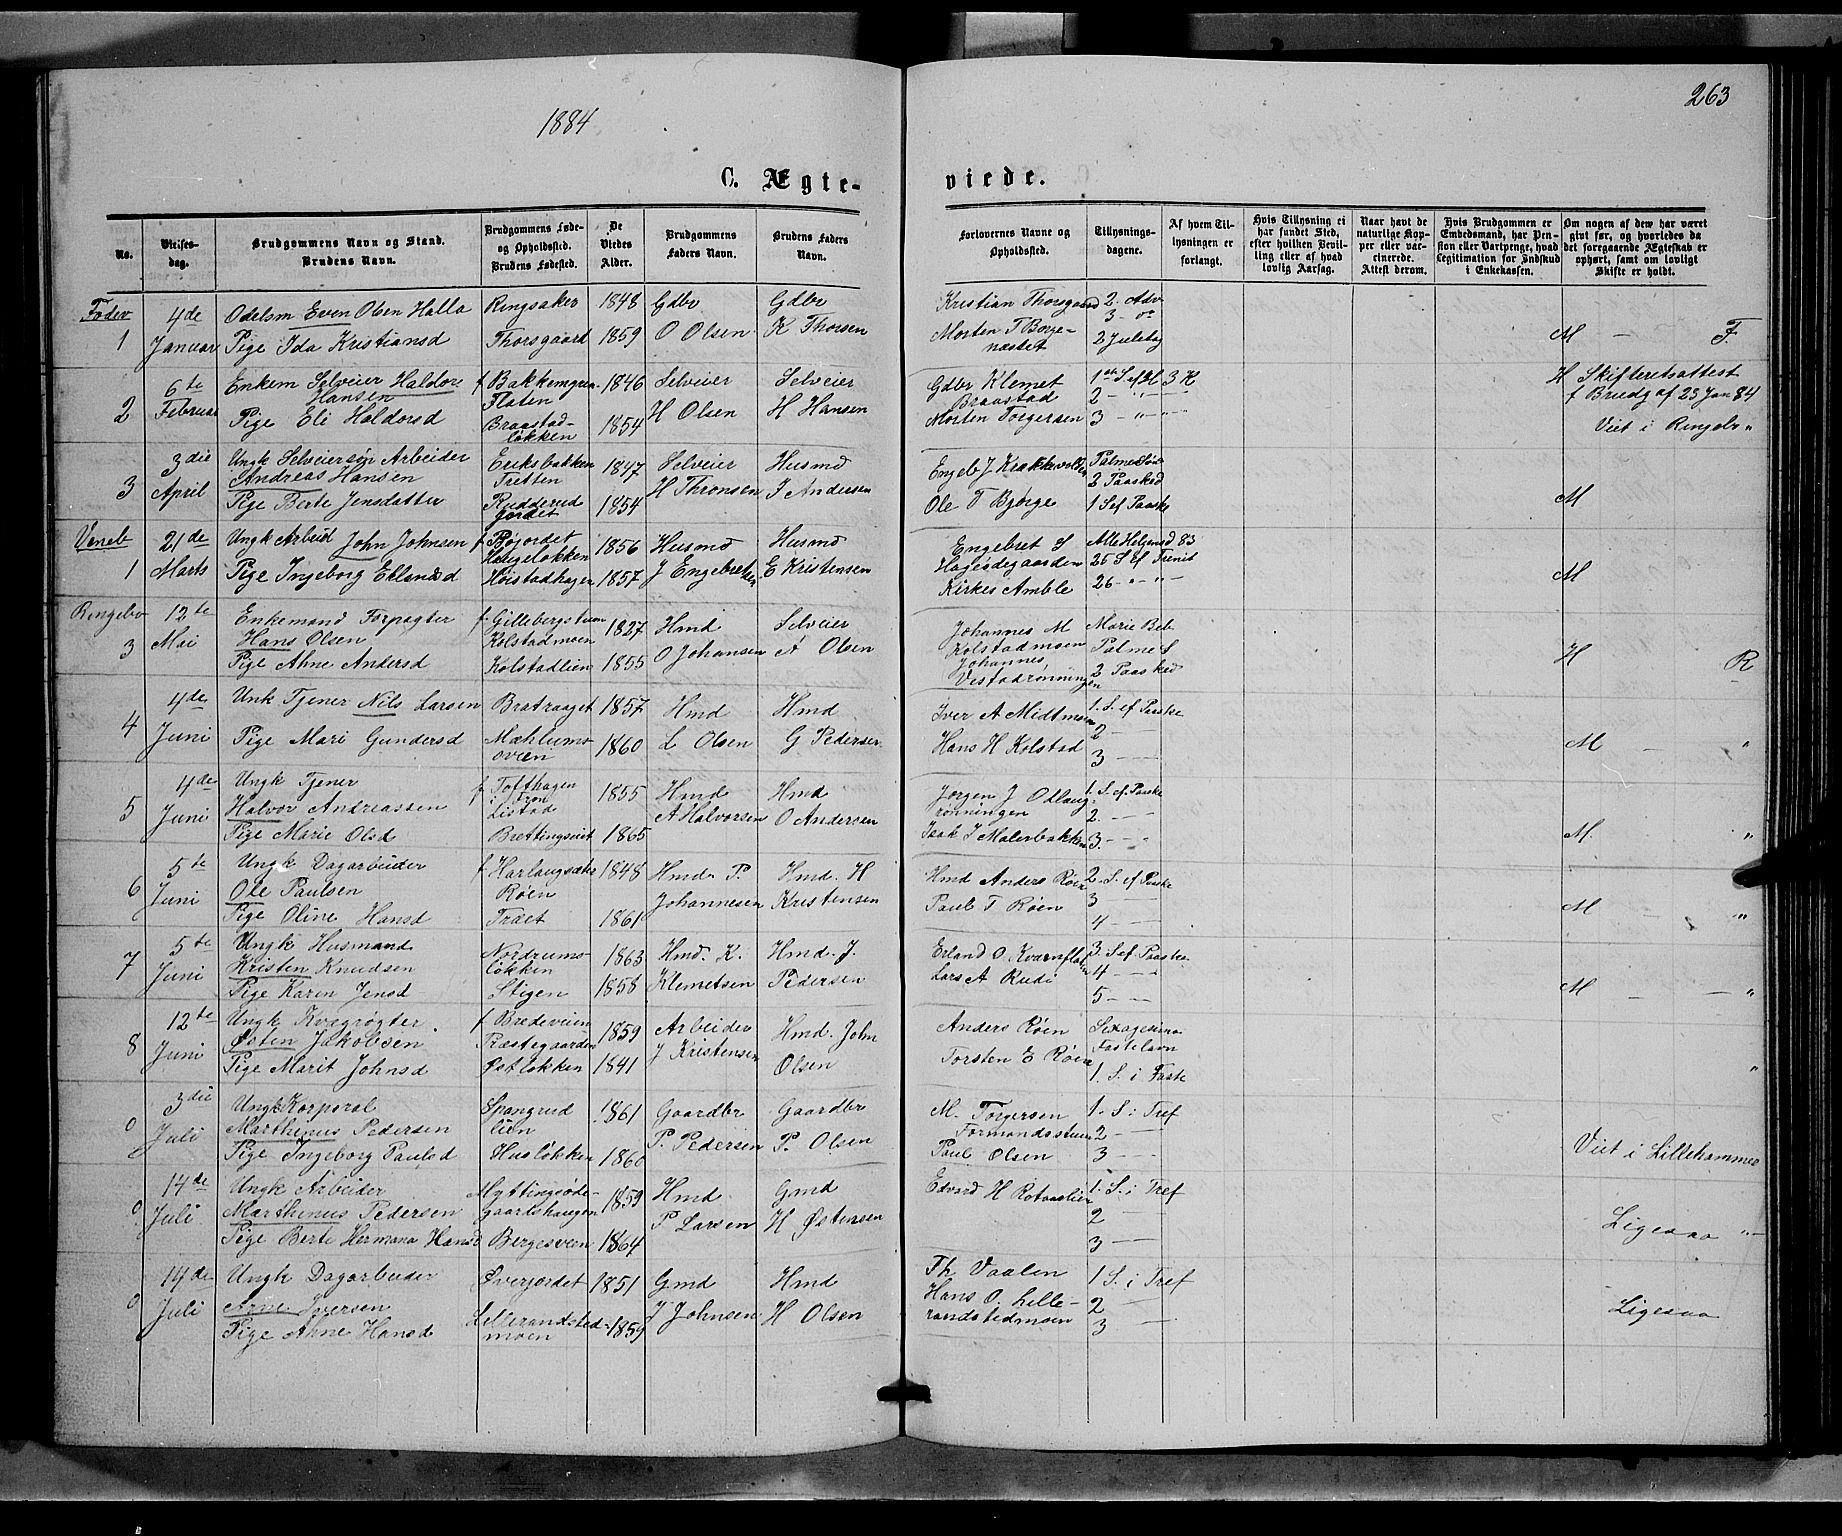 1884
263
C. Ægte-
viede.
No.
Vielses-
dag.
Brudgommens Navn og Stand.
Brudens Navn.
Brudgommens Føde-
og Opholdssted.
Brudens Fødested.
De
Viedes
Alder.
Brudgommens
Faders Navn.
Brudens Faders
Navn.
Forlovernes Navne og
Opholdssted.
Tillysnings-
dagene.
Af hvem Til-
lysningen er
forlangt.
Hvis Tillysning ei
har fundet Sted,
efter hvilken Bevil-
ling eller af hvad
lovlig Aarsag.
Naar havt de
naturlige Kop-
per eller vac-
cinerede.
Attest derom.
Hvis Brudgommen er
Embedsmand, har Pen-
sion eller Vartpenge, hvad
Legitimation for Indskud
i Enkekassen.
Om nogen af dem har været
gift før, og hvorledes da
det foregaaende Ægteskab er
ophørt, samt om lovligt
Skifte er holdt.
Fodev 4de Odelsm Even Olsen Halla Ringsaker 1848 Gdbr Gdbr Kristian Thorsgaard 2. Adv
1 Januar Pige Ida Kristiansd Thorsgaard 1859 O Olsen K Thorsen Morten T Borge- 3 - do
næstet 2 Juledag M - F.
6te Enkem Selveier Haldor f Bakkemgren 1846 Selveier Selveier Gdbr Klemet 1ste S. ef H 3 K H Skifteretsattest
2 Februar Hansen Flaten Braastad 2 - " - f Brudg af 23 Jan 84
Pige Eli Haldorsd Braastad- 1854 H Olsen H Hansen Morten Torgersen 3 - " - " - Viet i Ringebo "
løkken
3die Ungk Selveiersøn Arbeider Eriksbakken 1847 Selveier Husmd Engeb J Krækkevolden Palmesøn
3 April Andreas Hansen Tretten H Thronsen J Andersen 2 Paaskd
Pige Berte Jensdatter Rudderud 1854 Ole T Bjørge 1 S ef Paaske M
jordet
Veneb 21de Ungk Arbeid John Johnsen f Bøjordet 1856 Husmd Husmd Engebret S Alle Helgensd 83
1 Marts Haugeløkken Høgødegaarden 25 S ef Trenit
Pige Ingeborg Ellandsd Høistadhagen 1857 J Engebretsen E Kristensen Kirkes Amble 26 - " - " - M
Ringebo 12te Enkemand Forpagter f. Gillebergstuen 1827 Hmd Selveier Johannes M Marie Beb
3 Mai Hans Olsen Kolstadmoen O Johansen A Olsen Kolstadmoen Palme S
Pige Ahne Andersd Kolstadlien 1855 Johannes, 2 Paaskd H R
Vestadrønningen
4de Unk Tjener Nils Larsen Bratraaget 1857 Hmd Hmd Iver A Midtmoen 1. S. ef Paaske
4 Juni Pige Mari Gundersd Mæhlums- 1860 L Olsen G Pedersen Hans H Kolstad 2 -
ovien 3 - M - "
4de Ungk Tjener f Tofthagen 1855 Hmd Hmd Jørgen J Odlaug- 1. S. ef Paaske
5 Juni Halvor Andreassen i Fron A Halvorsen O Andersen rønningen 2. -
Listad
Pige Marie Olsd Brettingsvet 1865 Isak J Malerbakken 3. - M. "
5te Ungk Dagarbeider f Harlaugsæter 1848 Hmd. P. Hmd. H Hmd Anders Røen 2. S. ef Paaske
6 Juni Ole Paulsen Røen Johannesen Kristensen Paul T Røen 3 -
Pige Oline Hansd Træet 1861 4 - M "
5te Ungk Husmand Nordrums- 1863 Hmd. K. Hmd. J. Erland O. Kvarnflaten 3. S ef Paaske
7 Juni Kristen Knudsen løkken Klemetsen Pedersen Lars A Rudi 4 -
Pige Karen Jensd Stigen 1858 5 - M - - "
12te Ungk Kvægrøgter f Bredeveien 1859 Arbeider Hmd. John Anders Røen Sexagesima
8 Juni Østen Jakobsen Præstegaarden J Kristensen Olsen Torsten E Røen Fastelavn
Pige Marit Johnsd Østløkken 1841 1. S. i Faste "
3die Ungk Korporal Spangrud 1861 Gaardbr Gaardbr M. Torgersen 1. S. i Tref
0 Juli Marthinus Pedersen lien P. Pedersen P. Olsen Formandsstuen 2 -
Pige Ingeborg Paulsd Husløkken 1860 Paul Olsen 3 - Viet i Lillehammer
14de Ungk Arbeider Myttingsøde- 1859 Hmd Gmd Edvard H Rotvaslien 1. S. i Tref
0 Juli. Marthinus Pedersen gaartshaugen P Larsen H Østensen 2 -
Pige Berte Hermana Hansd Bergesveen 1864 3 - Ligesaa "
14de Ungk Dagarbeider Øverjordet 1851 Gmd Hmd Th. Vaalen 1 S. i Tref
0 Juli Arne Iversen Lillerandsted- J Johnsen H Olsen Hans O. Lille- 2 -
Pige Ahne Hansd moen 1859 randstedmoen 3 - Ligesaa